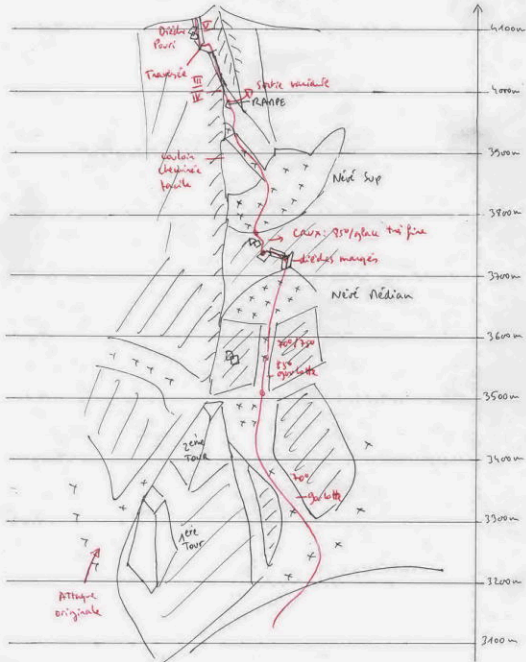 4100m
Dièdre
Pourri
V
Traversée
III
IV
4000m
Sortie variante
RAMPE
3900m
couloir
cheminée
facile
Névé Sup
3800m
CRUX: 85°/glace très fine
dièdes marqués
3700m
Névé Médian
3600m
70°/75°
85°
goulotte
3500m
2ème
Tour
3400m
70°
goulotte
3300m
1ère
Tour
3200m
Attaque
originale
3100m